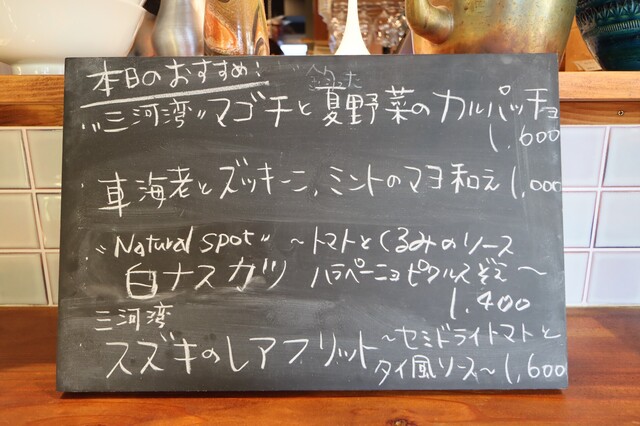 本日のおすすめ!
"三河湾"マゴチと夏野菜のカルパッチョ
1,600
車海老とズッキーニ、ミントのマヨ和え 1,000
"Natural spot" ~トマトとくるみのソース
白ナスカツ ハラペーニョピクルス添え~
1,400
三河湾
スズキのレアフリット ~セミドライトマトと
タイ風ソース~ 1,600